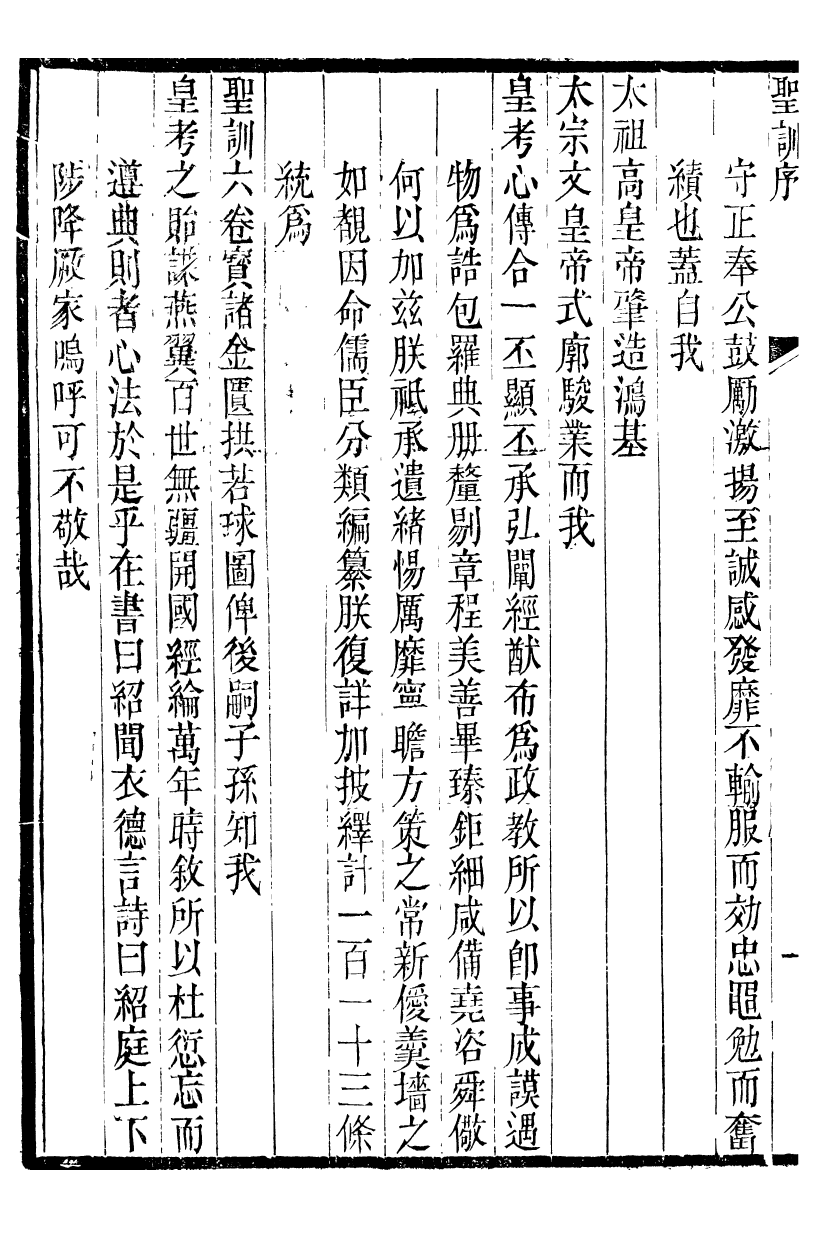 聖訓序
一
守正奉公鼓勵激揚至誠感發靡不輸服而効忠黽勉而奮
績也蓋自我
太祖高皇帝肇造鴻基
太宗文皇帝式廓駿業而我
皇考心傳合一丕顯丕承弘闡經猷布爲政教所以卽事成謨遇
物爲誥包羅典册釐剔章程美善畢臻鉅細咸備堯咨舜儆
何以加兹朕祗承遺緒惕厲靡寧瞻方策之常新優羹墻之
如覩因命儒臣分類編纂朕復詳加披繹計一百一十三條
統爲
聖訓六卷寶諸金匱拱若球圖俾後嗣子孫知我
皇考之貽謀燕翼百世無疆開國經綸萬年時敘所以杜愆忘而
遵典則者心法於是乎在書曰紹聞衣德言詩曰紹庭上下
陟降厥家嗚呼可不敬哉